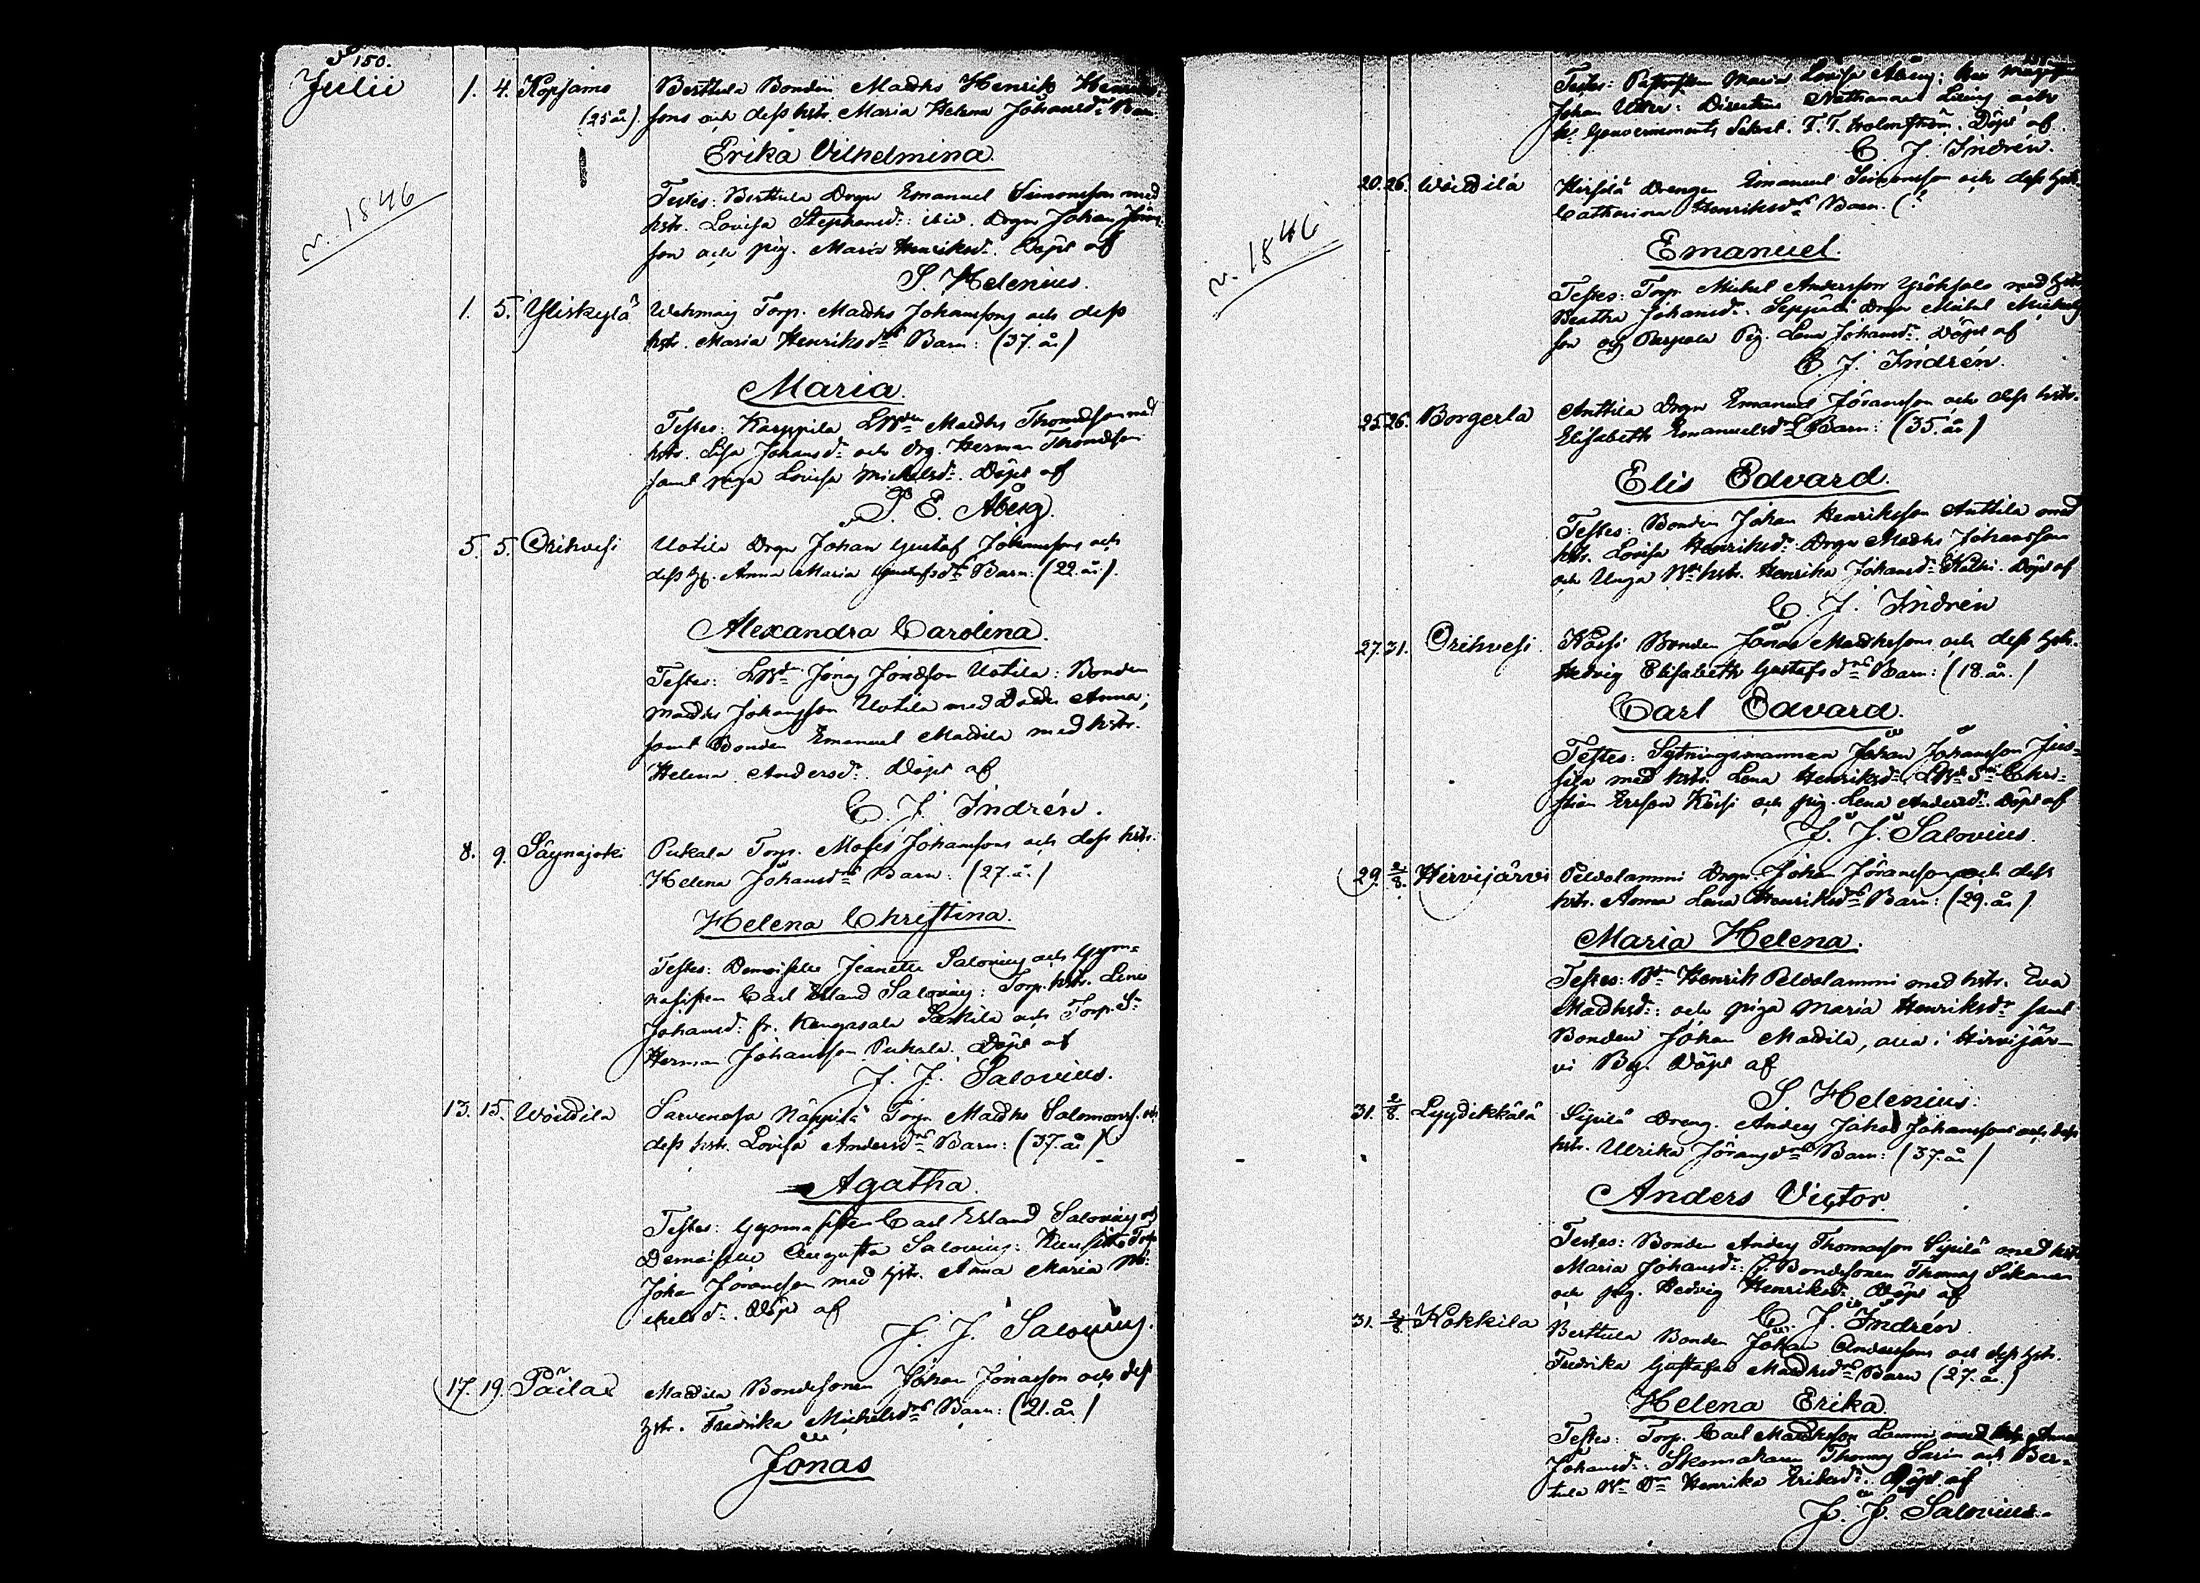 S 150.
Julii
v. 1846
1. 4. Kopsamo Berttula Bonden Matths Henrik
(25 år). sons och dess hstr. Maria Helena Johansdrs Barn
Erika Vilhelmina.
Testes: Berttula Drgn Emanuel Simonsson med
hstr. Lovisa Stephansdr: ibid. Drgn Johan
son och pig. Maria Henriksdr. Döpt af
S. Helenius.
1. 5. Yliskylä Torp. Matths Johanssons och dess
hstr. Maria Henriksdrs Barn: (37. år)
Maria.
Testes: Karppila Matths Thomasson med
hstr. Lisa Johansdr och drg. Herman Thomasson
samt piga Lovisa Michelsdr. Döpt af
P. E. Åberg.
5. 5. Orihvesi Uotila Drgn Johan Gustaf Johanssons och
dess h. Anna Maria Gustafsdrs Barn: (22. år).
Alexandra Carolina.
Testes: Jonas Jonasson Uotila: Bonden
Matths Johansson Uotila med Anna,
samt Bonden Emanuel Mattila med hstr.
Helena Andersdr. Döpt af
C. J. Indrén.
8. 9. Säynäjoki Pukala Torp. Moses Johanssons och dess hstr.
Helena Johansdrs Barn: (27. år)
Helena Christina.
Testes: Demoiselle Jeanette Salovius och Gym-
nasisten Carl Erland Salovius: Torp. hstr. Lena
Johansdr: fr. Kangasala och Torp. Sn
Herman Johansson Pukala. Döpt af
J. J. Salovius.
13. 15. Wöitila Näppilä Torp. Matths Salomonss. och
dess hstr. Lovisa Andersdrs Barn: (37. år)
Agatha.
Testes: Gymnasisten Carl Erland Salovius och
Demoiselle Augusta Salovius: Torp.
Johan Jöransson med hstr. Anna Maria Mi-
chelsdr. Döpt af
J. J. Salovius.
17. 19. Päilae Mattila Bondesonen Johan Jonasson och dess
hstr. Fredrika Michelsdrs Barn: (21. år)
Jonas
v. 1846
Testes: Maria Lovisa
Johan Directeur Nathanael och
Gouvernements Sekret. F. T. Holmström. Döpt af
C. J. Indrén.
20. 26. Wöitilä Hirsilä Drengen Emanuel Simonsson och dess hstr.
Catharina Henriksdrs Barn. (?
Emanuel.
Testes: Torp. Michel Andersson Yröhjala med hstr.
Beatha Johansdr. Seppälä Drgn Michel Michels
son och Pig. Lena Johansdr. Döpt af
C. J. Indrén.
25. 26. Borgerla Anttila Drgn Emanuel Jöransson och dess hstr.
Elisabeth Emanuelsdrs Barn: (35. år)
Elis Edvard.
Testes: Bonden Johan Henriksson Anttila med
hstr. Lovisa Henriksdr. Drgn Matths Johansson
och Unga hstr. Henrika Johansdr. Döpt af
C. J. Indrén
27. 31. Orihvesi Kåssi Bonden Jonas Matthssons och dess hstr.
Hedvig Elisabeth Gustafsdrs Barn: (18. år.)
Carl Edvard.
Testes: Sytningsmannen Johan Johansson Jus-
sila med hstr. Lena Henriksdr. Chri-
stian Ersson Kåssi och pig. Lena Andersdr. Döpt af
J. J. Salovius.
29. 2/8. Hirvijärvi Peldolammi Drgn. Johan Jöransson och dess
hstr. Anna Lena Henriksdrs Barn: (29. år)
Maria Helena.
Testes: Henrik Peldolammi med hstr. Eva
Matthsdr: och piga Maria Henriksdr samt
Bonden Johan Mattila, alla i Hirvijär-
vi By. Döpt af
S Helenius.
31. 2/8. Lyydikkälä Sipilä Dreng. Anders Johan Johanssons och dess
hstr. Ulrika Jöransdrs Barn: (37. år)
Anders Victor.
Testes: Bonden Anders Thomasson Sipilä med hstr
Maria Johansdr: Bondesonen Thomas
och pig. Hedvig Henriksdr. Döpt af
C. J. Indrén.
31. 2/8. Kokkila Berttula Bonden Johan Anderssons och dess hstr.
Fredrika Gustafva Matthsdrs Barn (27. år)
Helena Erika.
Testes: Torp. Carl Matthsson Lammi med hstr. Anna
Johansdr: Skomakaren Thomas och Ber-
tula Henrika Eriksdr. Döpt af
J. J. Salovius.